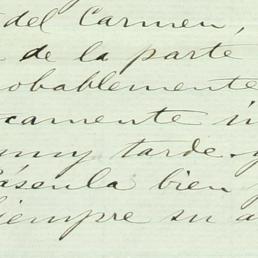 del Carmen,
de la parte
obablemente
camente in
muy tarde. y
bien
iempre su a